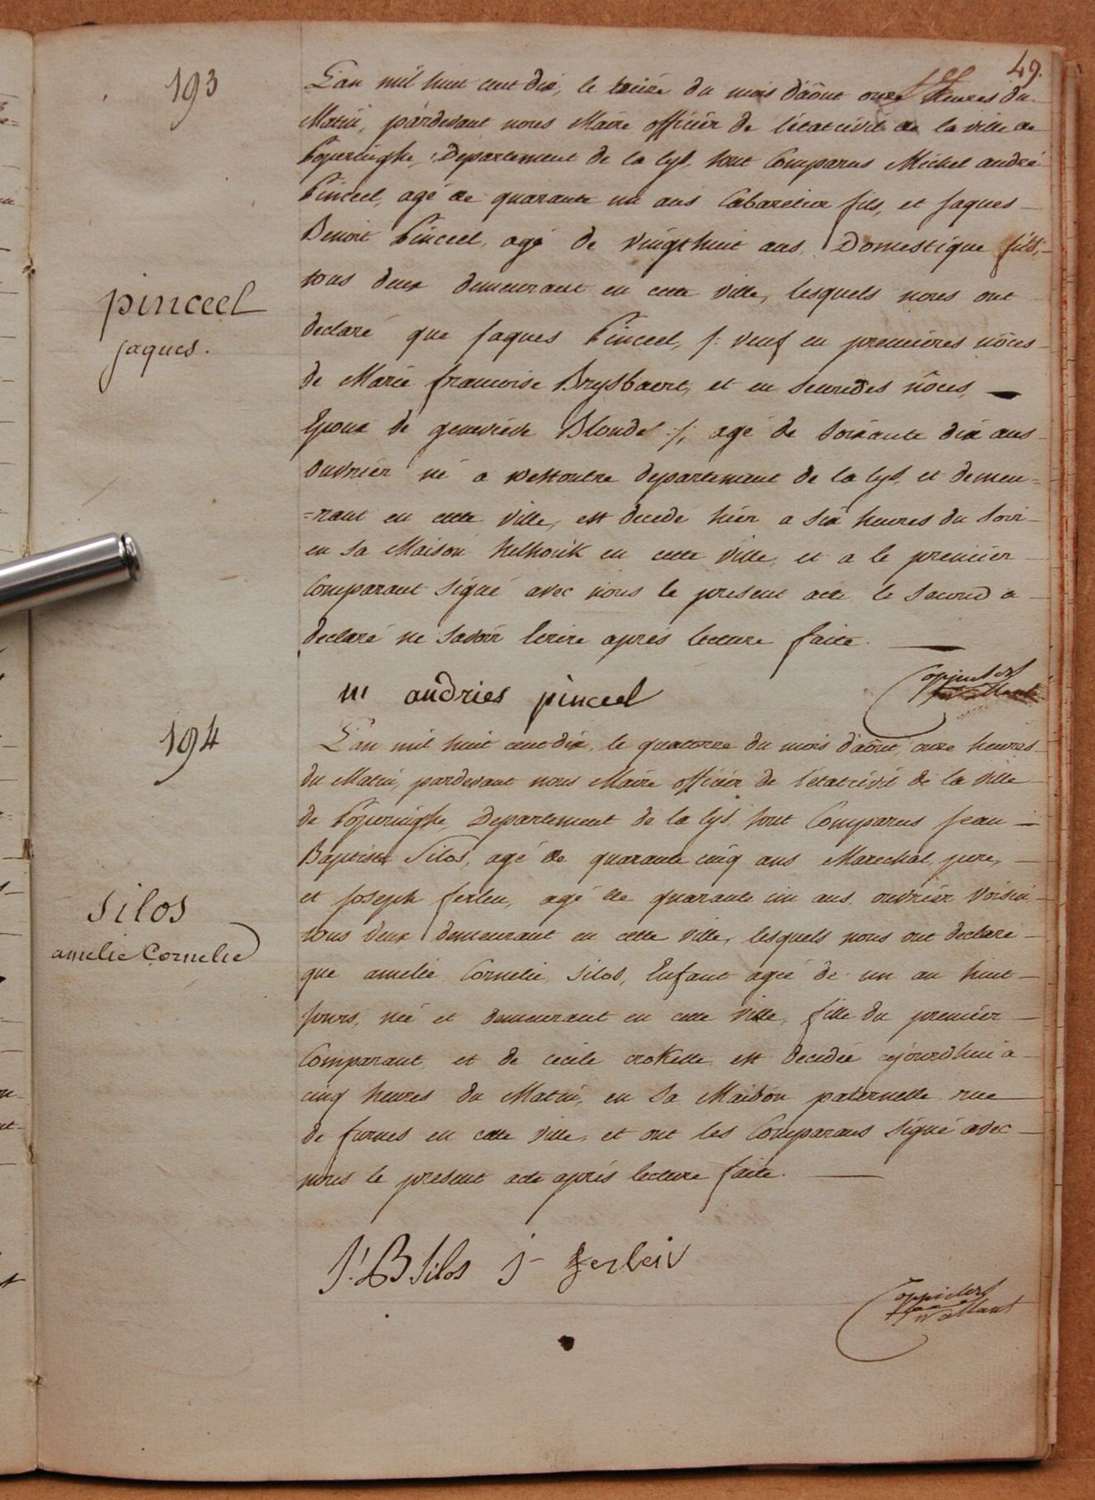 49.
193
L'an mil huit cent dix, le treize du mois d'aôut onze heures du
Matin, pardevant nous Maire officier de l'etat civil de la ville de
Poperinghe, Departement de la Lys, sont Comparus Michel andré
Pinceel, agé de quarante un ans Cabaretier fils, et jaques
Benoit Pinceel, agé de vingt huit ans, Domestique fils,
tous deux demeurant en cette ville, lesquels nous ont
pinceel
jaques.
declaré que jaques Pinceel, /: veuf en premieres nôces
de Marie francoise Brysbaert, et en secondes nôces,
Epoux de genevieve Blondel :/, agé de soixante dix ans
ouvrier né a Westoutre departement de la lys, et demeu=
=rant en cette ville, est decedé hier a six heures du soir
en sa Maison helhoek en cette ville, et a le premier
Comparant signé avec nous le present acte le second a
declaré ne savoir Ecrire aprés lecture faite.
m andries pinceel
194
L'an mil huit cent dix, le quatorze du mois d'aôut, onze heures
du Matin, pardevant nous Maire officier de l'etat civil de la ville
de Poperinghe, Departement de la Lys, sont Comparus jean
Baptiste Silos, agé de quarante cinq ans Marechal, pere,
et joseph ferleu, agé de quarante un ans, ouvrier voisin,
Silos
amelie Cornelie
tous deux demeurant en cette ville, lesquels nous ont declaré
que amelie Cornelie Silos, Enfant agée de un an huit
jours, née et demeurant en cette ville, fille du premier
Comparant et de cecile crokette est decedée aujourdhui a
cinq heures du Matin, en sa Maison paternelle rue
de furnes en cette ville, et ont les Comparans signé avec
nous le present acte aprés lecture faite.
J: B Silos j ferleiv